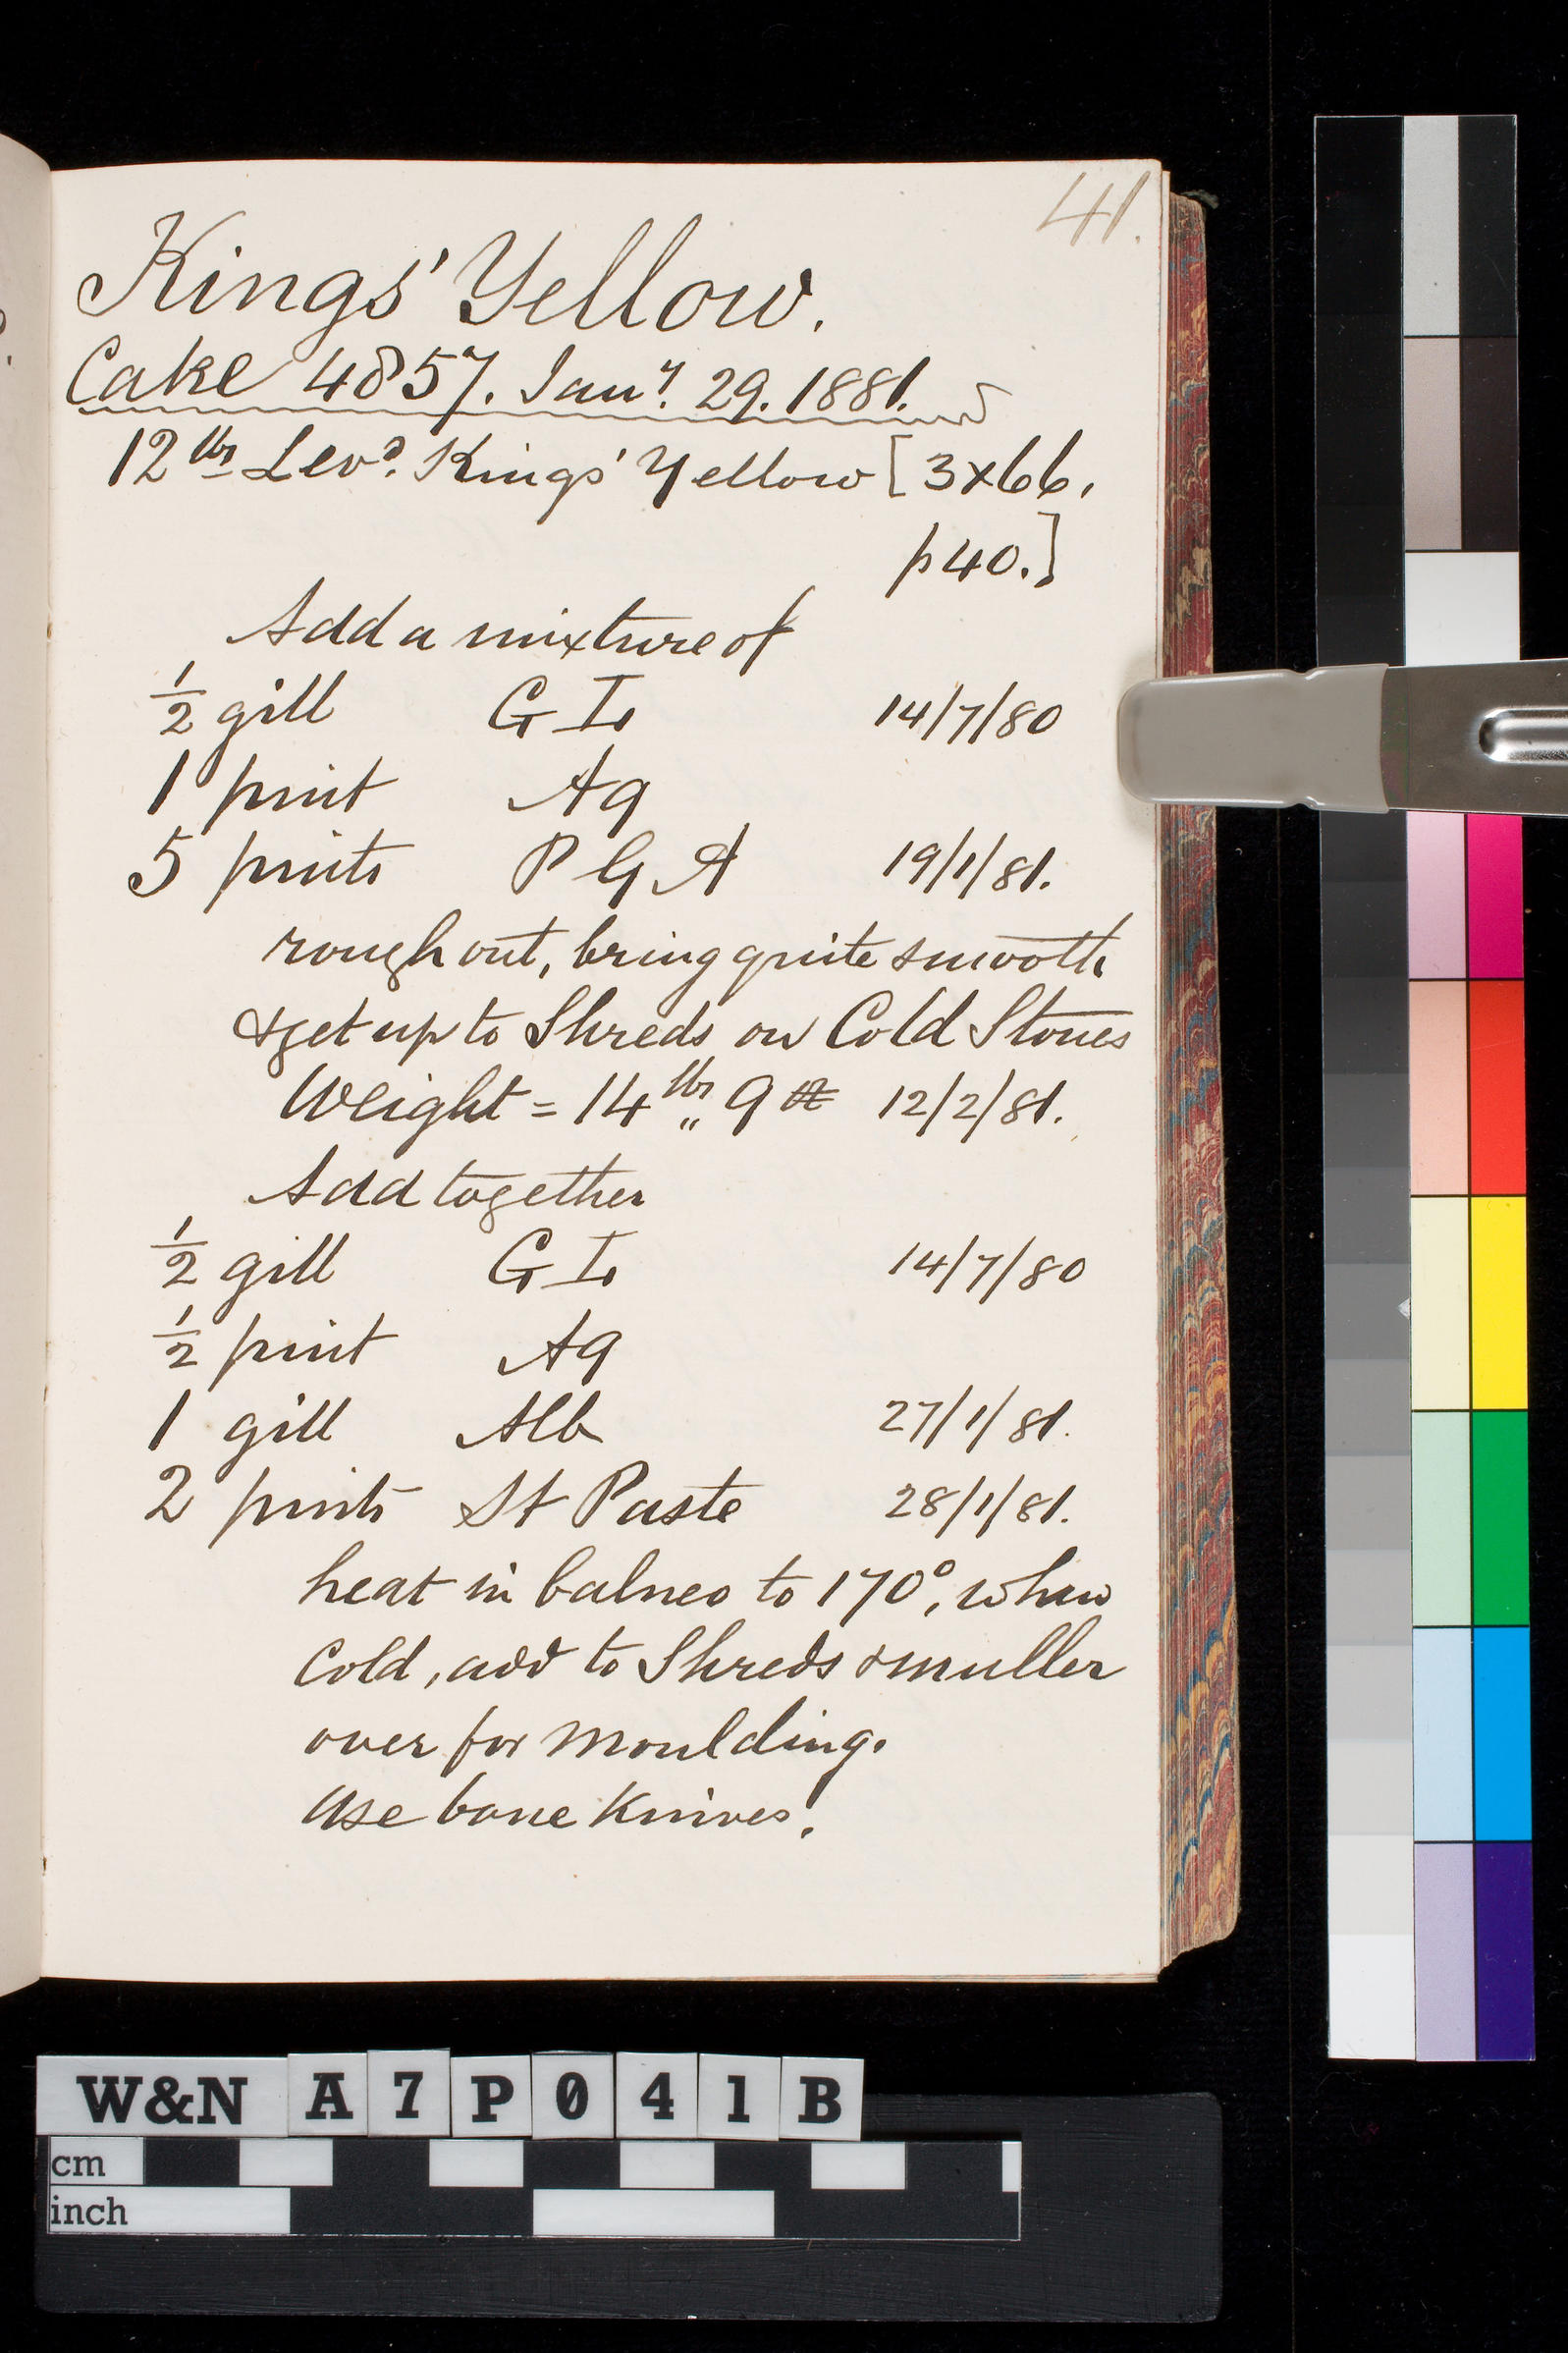 41.
Kings' Yellow.
Cake 4857. Jany. 29. 1881.
12 lbs Levd. Kings' Yellow [3x66,
p 40.]
Add a mixture of
1/2 gill G I. 14/7/80
1 pint Aq
5 pints P G A 19/1/81.
rough out, bring quite smooth
& get up to Shreds on Cold Stones
Weight = 14 lbs 9 oz 12/2/81.
Add together
1/2 gill G I. 14/7/80
1/2 pint Aq
1 gill Alb 27/1/81.
2 pints St Paste 28/1/81.
heat in balneo to 170°, when
Cold, add to Shreds & muller
over for moulding.
Use bone Knives.
W&N A7P041B
cm
inch